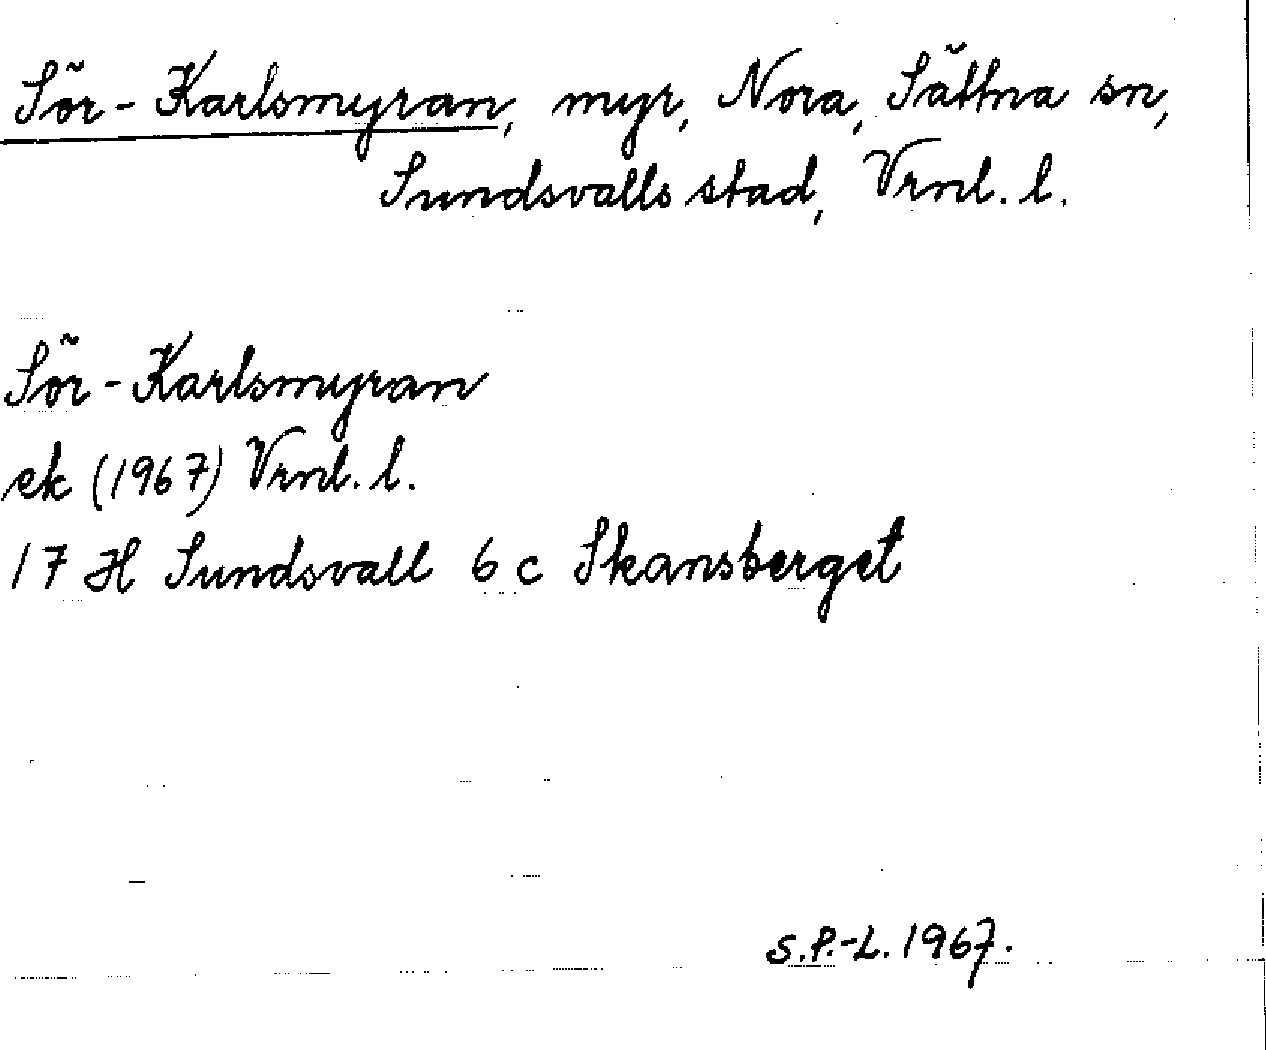 Sör-Karlsmyran, myr, Nora, Sättna sn,
Sundsvalls stad, Vrnl. l.
Sör-Karlsmyran
ek (1967) Vrnl. l.
17 H Sundsvall 6 c Skansberget
S.P.-L. 1967.